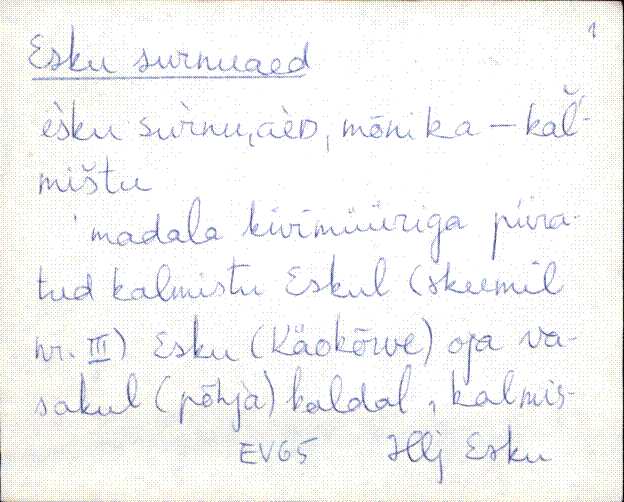 1
Esku surnuaed
èsku sùrnu,aèD, mōnika – kaĺ̆-
mištu
'madala kivimüüriga piira-
tud kalmistu Eskul (skeemil
nr. III) Esku (Käokõrve) oja va-
sakul (põhja) kaldal, kalmis-
EV65 Hlj Esku